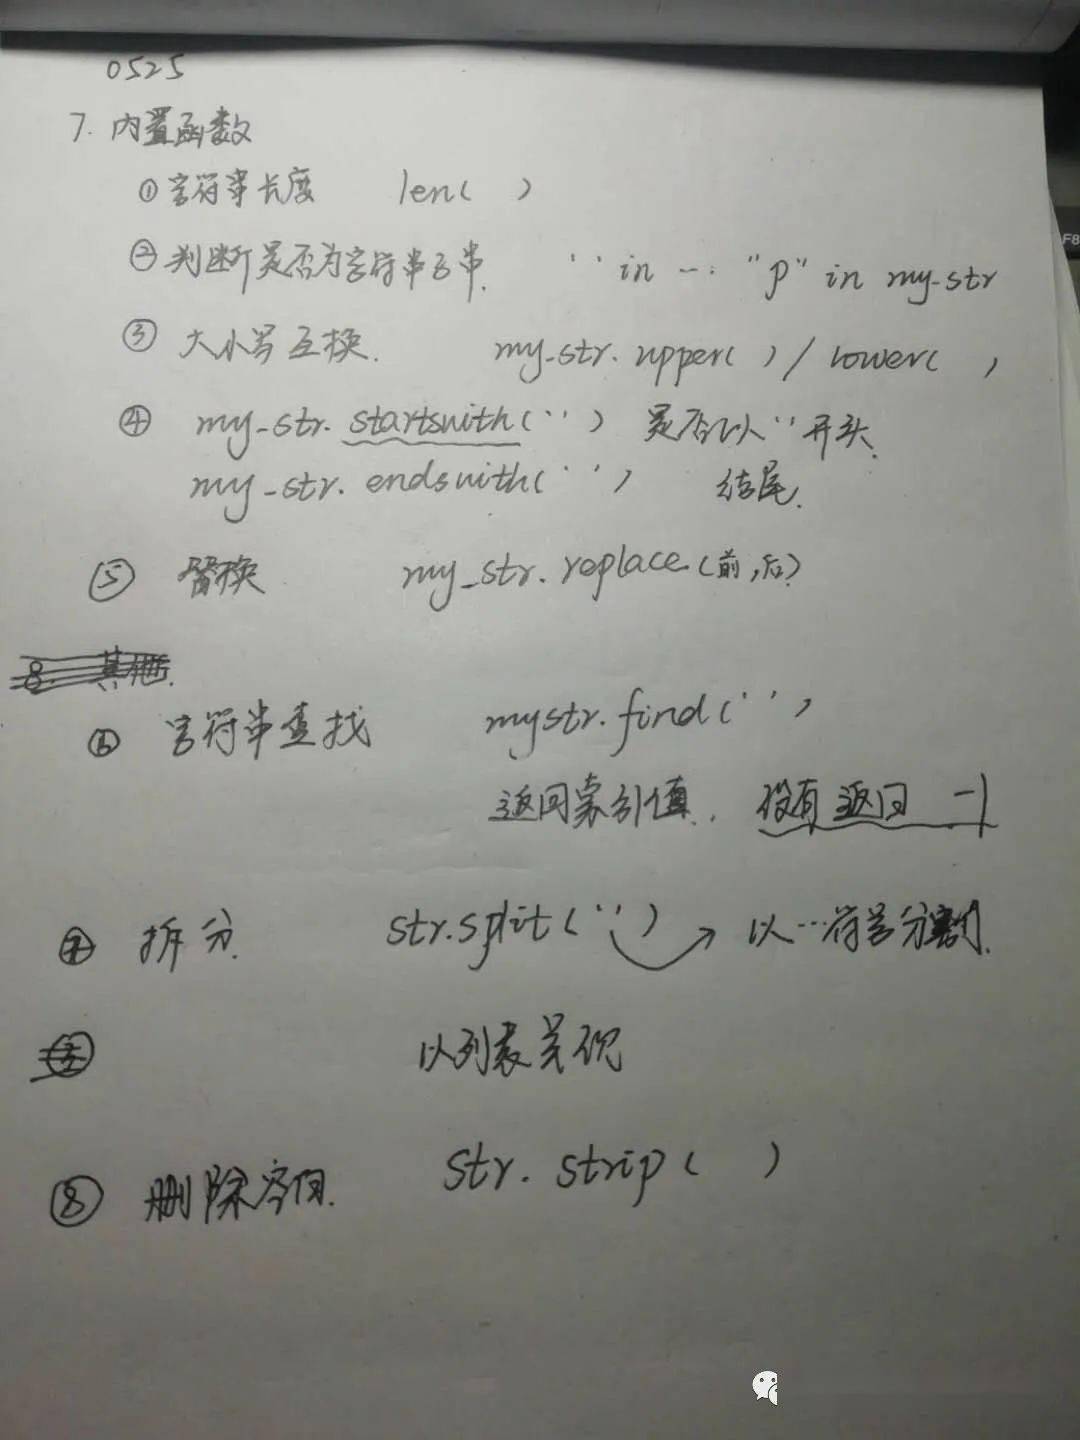 0525
7. 内置函数
① 字符串长度 len( )
② 判断是否为字符串子串. '' in …: "p" in my_str
③ 大小写互换. my_str.upper( ) / lower( )
④ my_str.startswith('') 是否以''开头.
my_str.endswith('') 结尾.
⑤ 替换 my_str.replace(前,后)
8. 其他.
⑥ 字符串查找 mystr.find('')
返回索引值. 没有返回 -1
⑦ 拆分. str.split('') → 以…符号分割.
以列表呈现
⑧ 删除空白. str.strip( )
F8